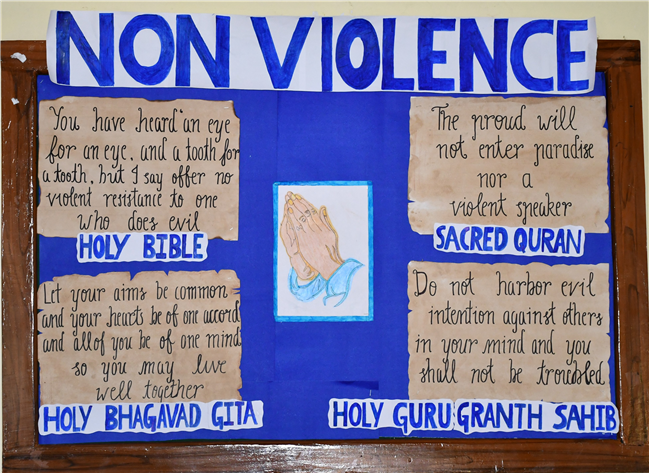 NON VIOLENCE
You have heard an eye
for an eye, and a tooth for
a tooth, but I say offer no
violent resistance to one
who does evil
HOLY BIBLE
The proud will
not enter paradise
nor a
violent speaker
SACRED QURAN
Let your aims be common
and your hearts be of one accord
and all of you be of one mind
so you may live
well together
HOLY BHAGAVAD GITA
Do not harbor evil
intention against others
in your mind and you
shall not be troubled
HOLY GURU GRANTH SAHIB